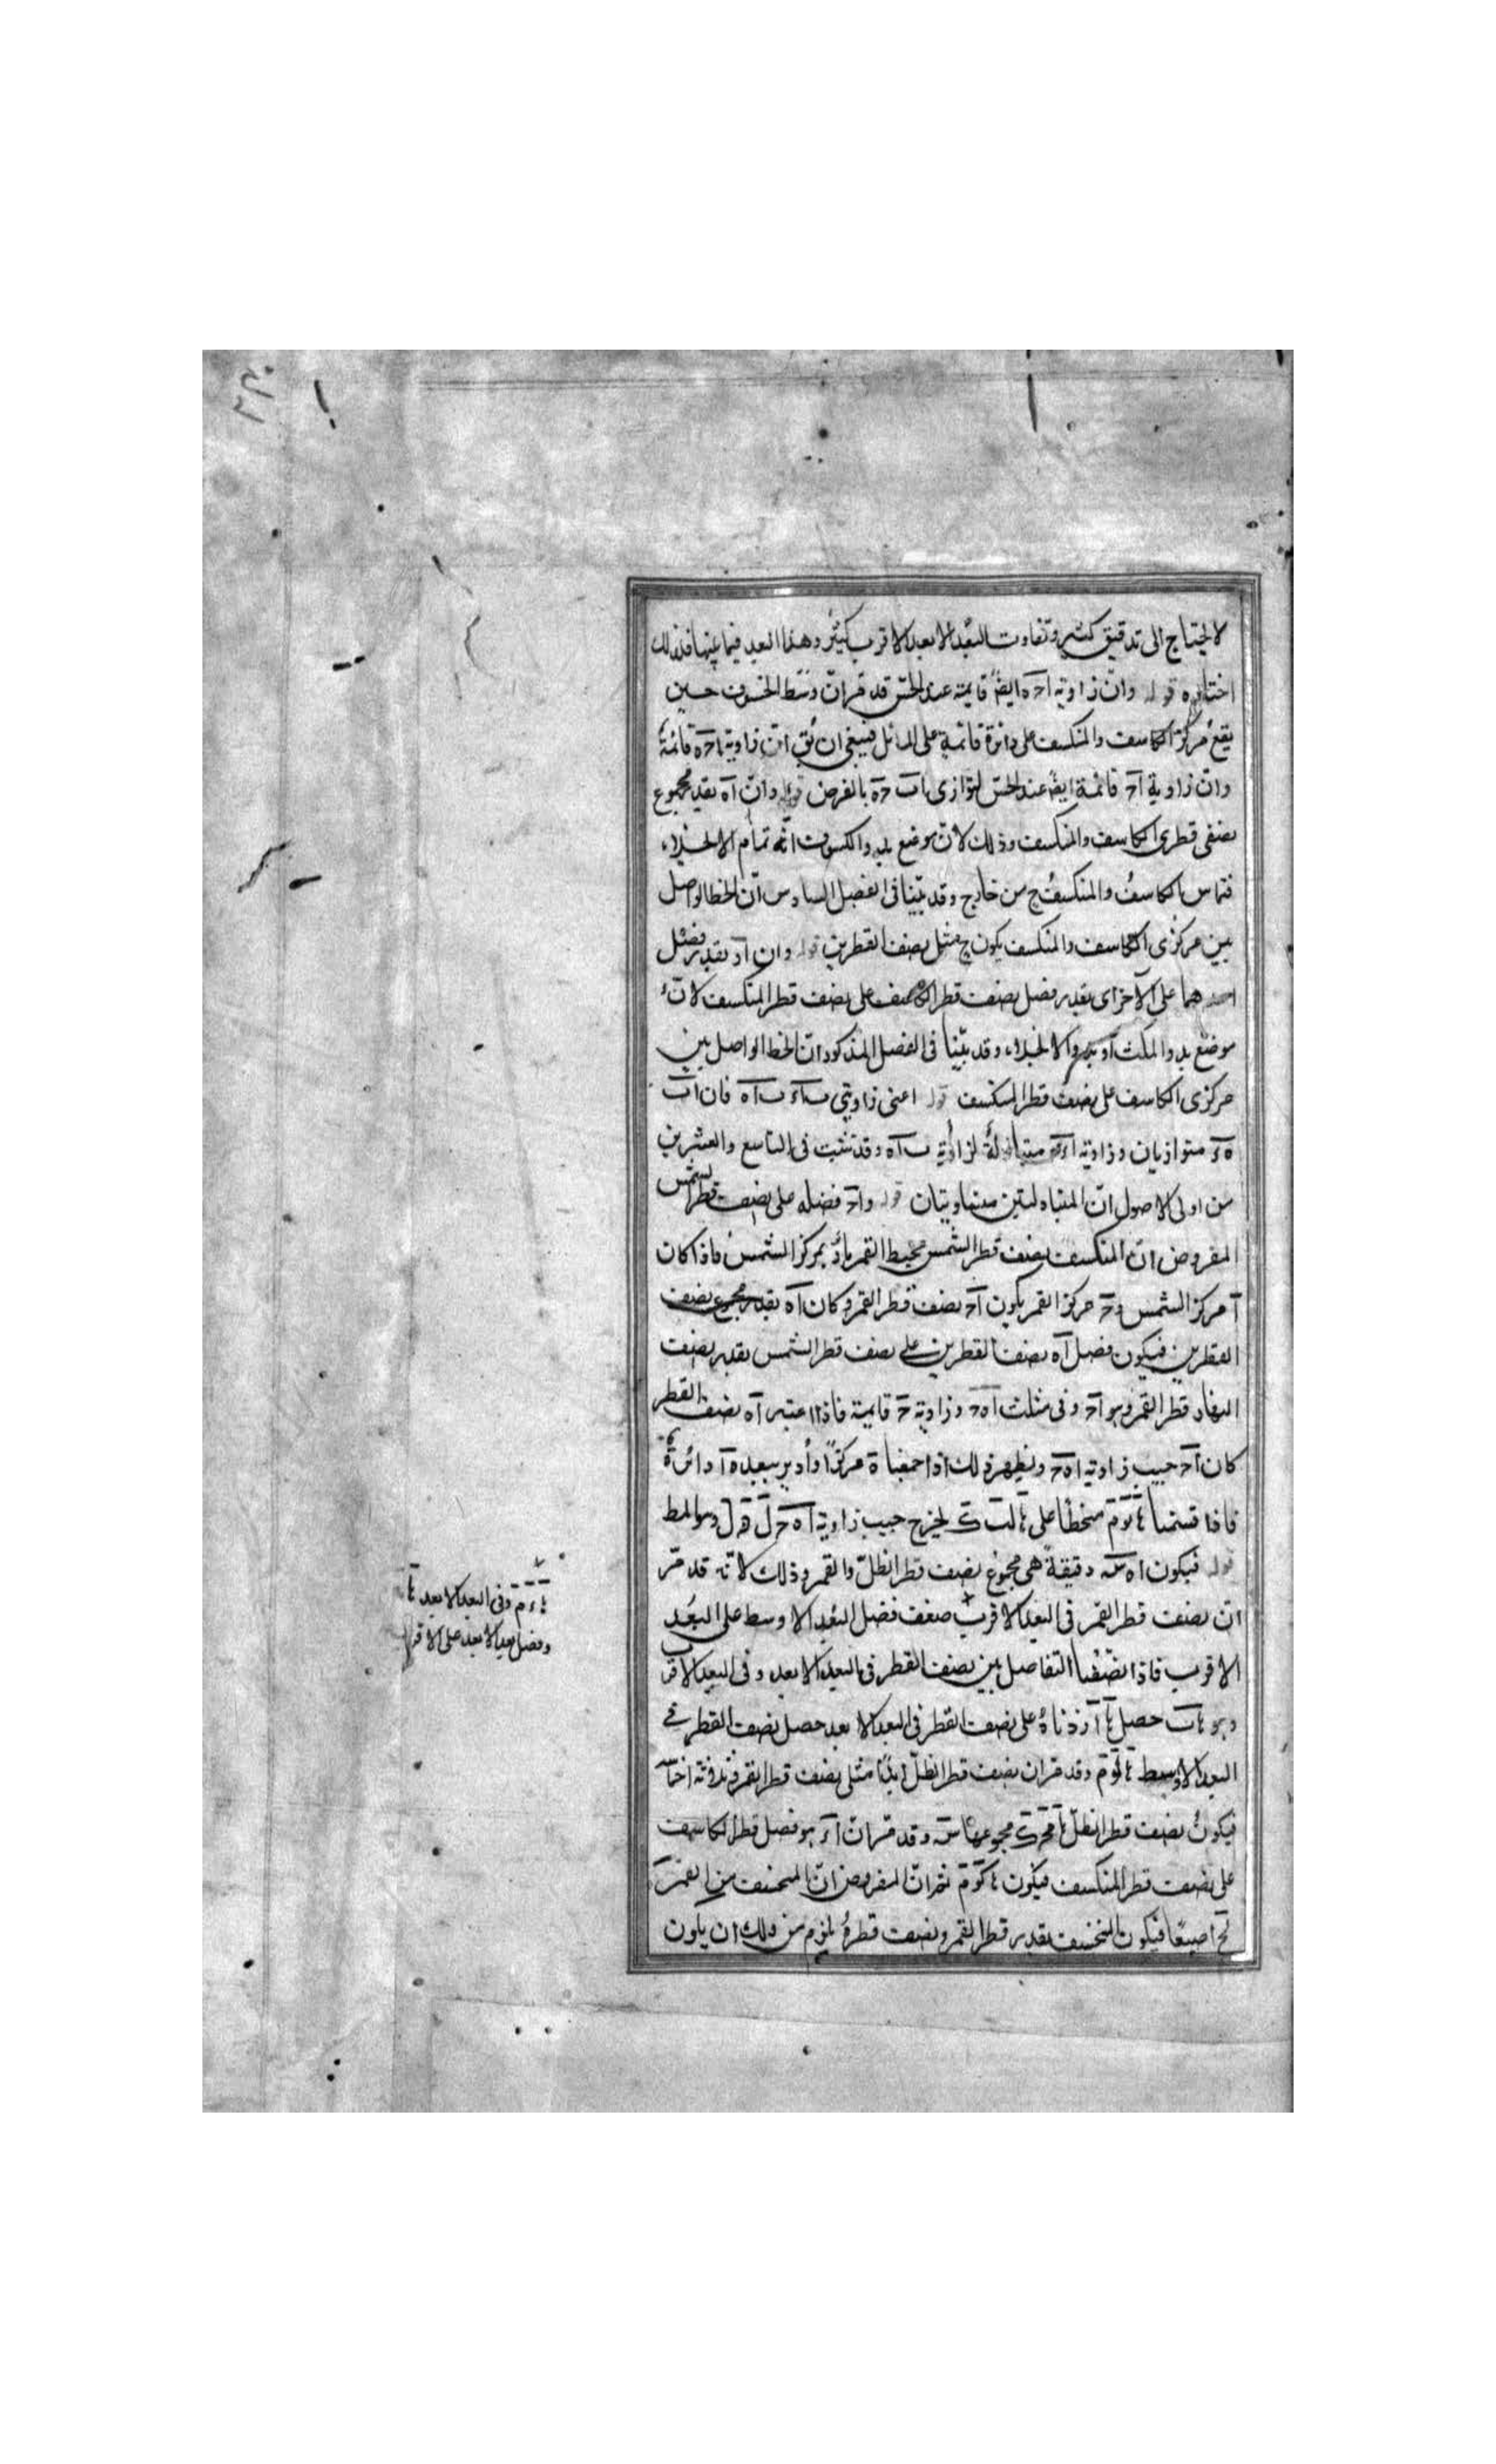 لا يحتاج الى تدقيق كثير وتفاوت البعد الابعد الاقرب كثير وهذا البعد فيما بينها فلذلك
اختاره قوله وان زاوية احه ايضً قايمة عند الحس قد مر ان وسط الخسوف حين
يقع مركز الكاسف والمنكسف على دائرة قائمة على المائل فينبغي ان يق ان زاوية احه قائمة
وان زاوية اح قائمة ايضً عند الحس لتوازى اب حه بالفرض قوله وان اه بقدر مجموع
نصفى قطرى الكاسف والمنكسف وذلك لان موضع بدو الكسوف انه تمام الانجلاء
فتماس الكاسف والمنكسف ح من خارج وقد بينا فى الفصل السادس ان الخط الواصل
بين مركزى الكاسف والمنكسف يكون ح مثل نصف القطرين قوله وان اد بقدر فضل
احدهما على الآخر اى بقدر فضل نصف قطر الكاسف على نصف قطر المنكسف لانه
موضع بدو المكث او بدو الانجلاء وقد بينا فى الفصل المذكور ان الخط الواصل بين
مركزى الكاسف على نصف قطر المنكسف قوله اعنى زاويتى باء باه فان اب
هء متوازيان وزاوية متبادلة لزاوية باه وقد تثبت فى التاسع والعشرين
من اولى الاصول ان المتبادلتين متساويتان قوله واح فضله على نصف قطر الشمس
المفروض ان المنكسف نصف قطر الشمس محيط القمر بمركز الشمس فاذا كان
آ مركز الشمس وح مركز القمر يكون اح نصف قطر القمر وكان اه بقدر مجموع نصف
القطرين فيكون فضل اه نصف القطرين على نصف قطر الشمس بقدر نصف
قطر القمر وهو اح وفى مثلث اهح وزاوية ح قايمة فاذا اعتبر اه نصف القطر
كان اح جيب زاوية اهح ويظهر ذلك اذا جعلنا ه مركزًا وادير ببعد ه ا دائرة
فاذا قسمنا منحطًا على ليخرج جيب زاوية وهو المط
قوله فيكون اه دقيقة هى مجموع نصف قطر الظل والقمر وذلك لانه قد مر
ان نصف قطر القمر فى البعد الاقرب ضعف فضل البعد الاوسط على البعد
الاقرب فاذا نصفنا التفاضل بين نصف القطر فى البعد الابعد وفى البعد الاقرب
وهو حصل زدناه على نصف القطر فى البعد الابعد حصل نصف القطر فى
البعد الاوسط وقد مر ان نصف قطر الظل ابدًا مثلى نصف قطر القمر
فيكون نصف قطر الظل مجموعهما وقد مر ان اء هو فضل قطر الكاسف
على نصف قطر المنكسف فيكون ثم ان المفروض ان المنخسف من القمر
اصبعًا فيكون المنخسف بقدر قطر القمر ونصف قطره يلزم من ذلك ان يكون
وفى البعد الابعد
وفضل بعد الابعد على الاقرب